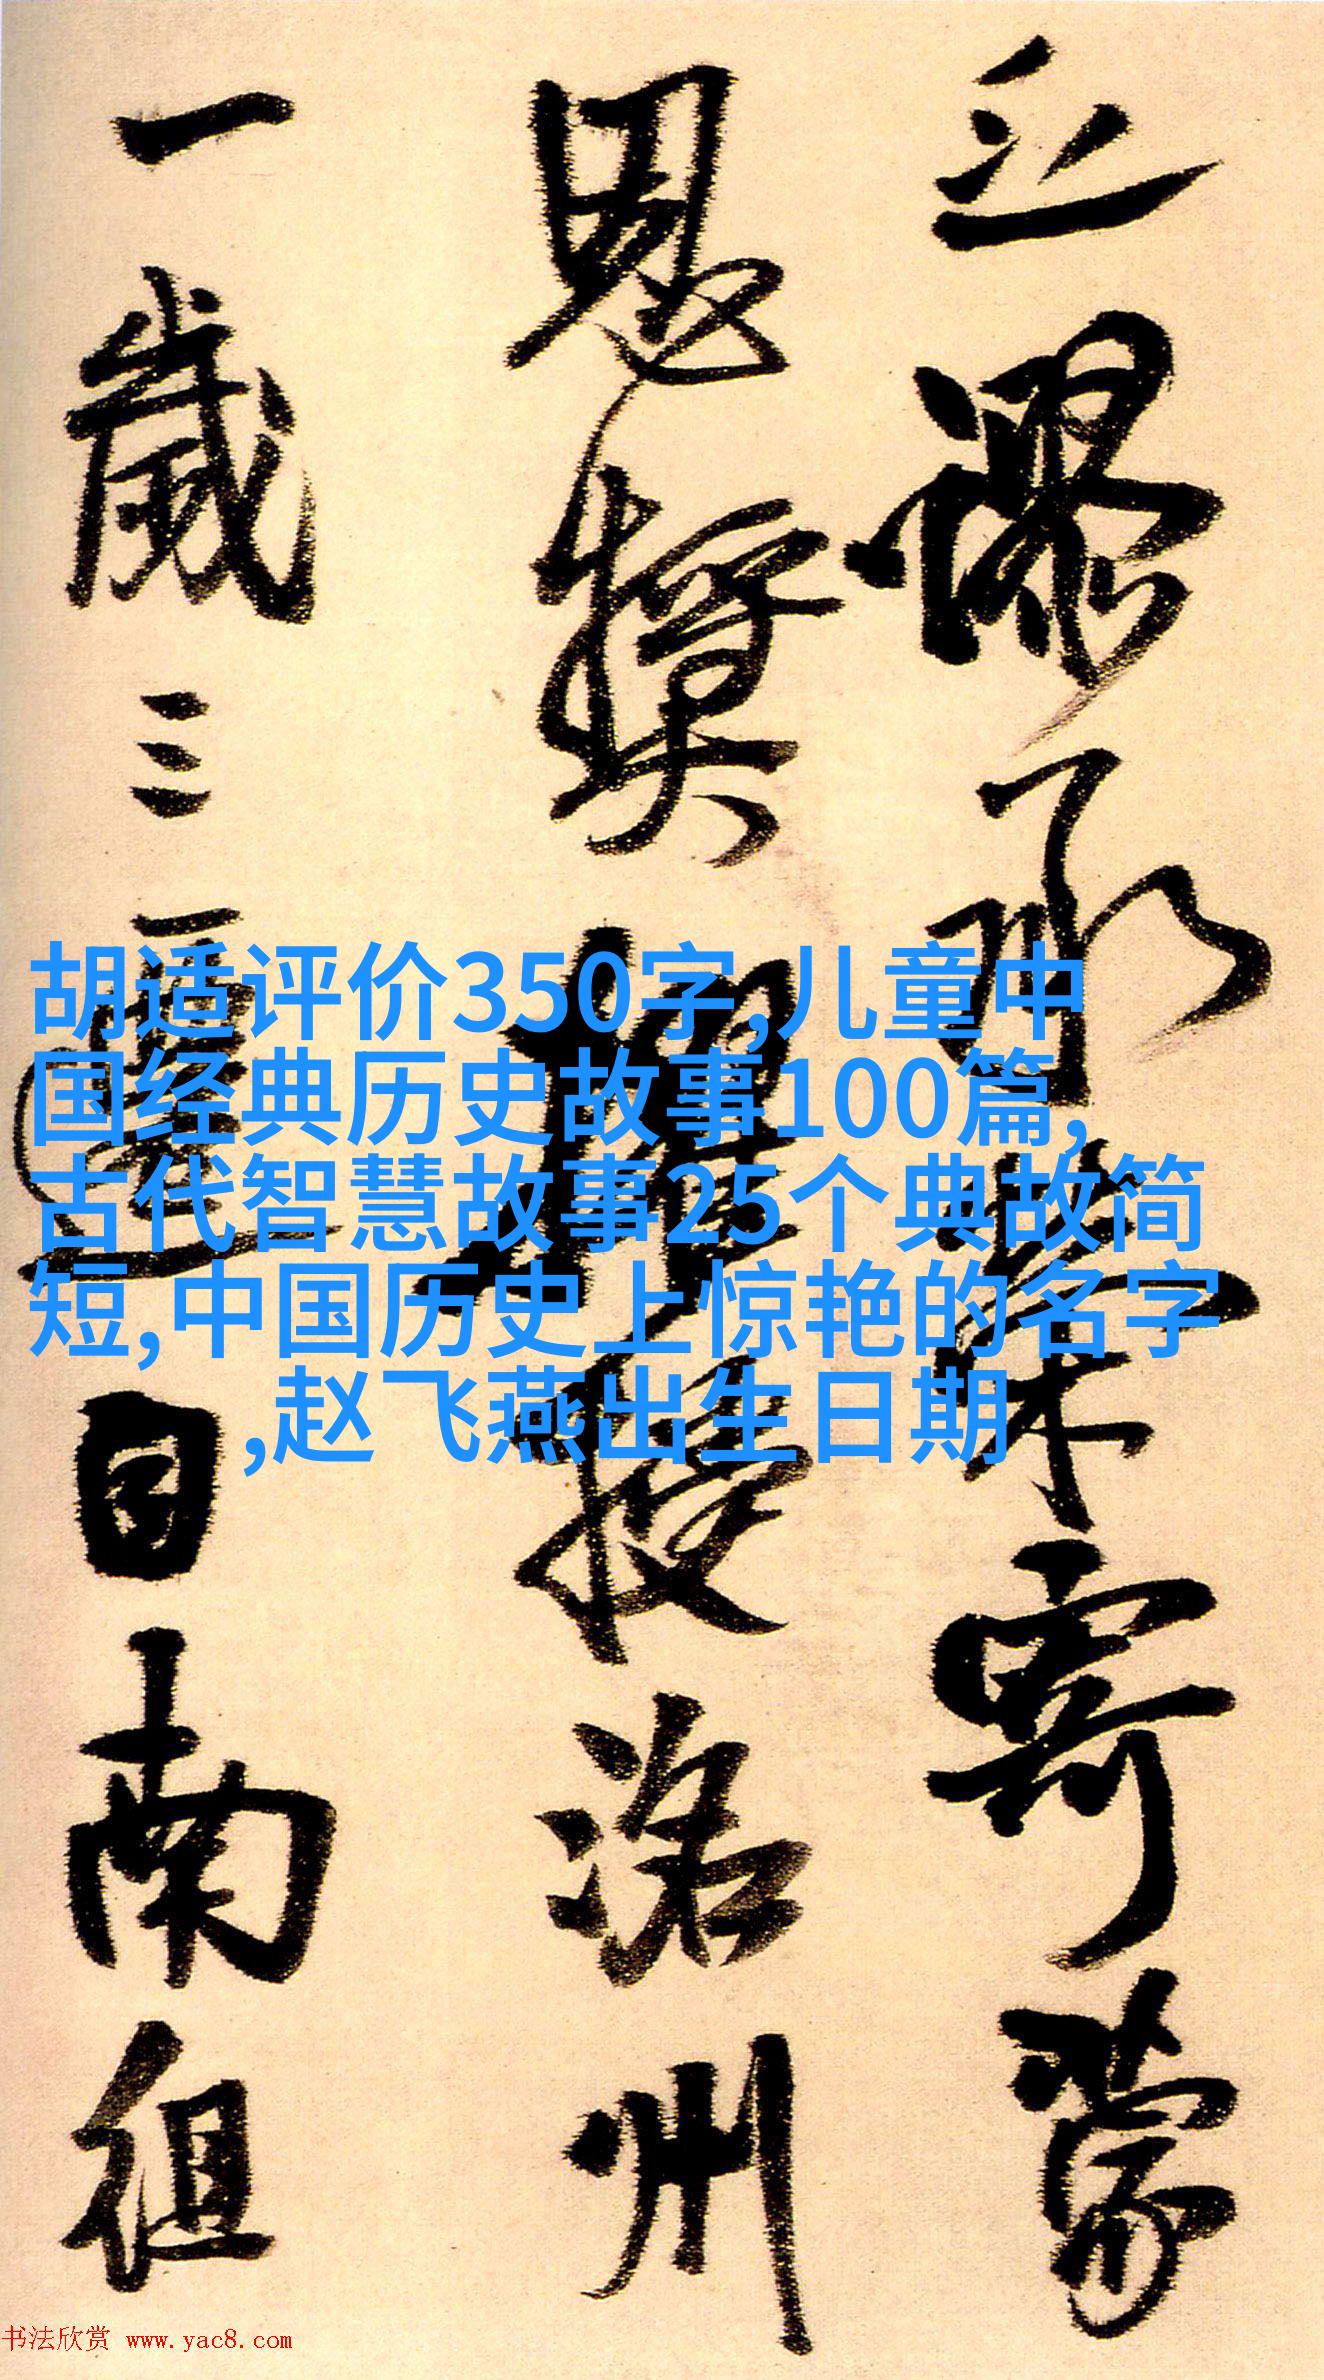 謬承榮寄蒙
恩獎擢授洛州
一歲三遷自南徂
胡适评价350字,儿童中
国经典历史故事100篇,
古代智慧故事25个典故简
短,中国历史上惊艳的名字
,赵飞燕出生日期
书法欣赏 www.yac8.com